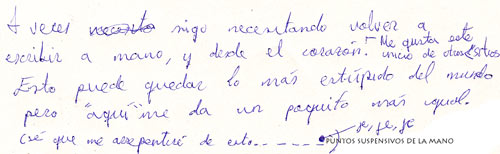 A veces necesito sigo necesitando volver a
escribir a mano, y desde el corazón! Me gusta este
inicio de otros sitios
Esto puede quedar lo más estúpido del mundo
pero "aquí" me da un poquito más igual.
(sé que me arrepentiré de esto...... je, je, je
PUNTOS SUSPENSIVOS DE LA MANO